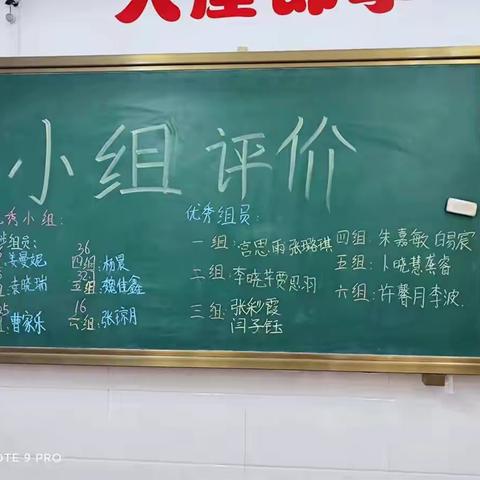 小组评价
秀小组:
组员:
姜曼妮
36
四组:杨晨
袁晓瑞
321
五组:魏佳鑫
曹家乐
16
六组:张琼月
优秀组员:
一组:宫思雨 张璐琪
二组:李晓芊 贾思羽
三组:张彩霞
闫子钰
四组:朱嘉敏 白易宸
五组:卜晓慧 龚睿
六组:许馨月 李波
OTE 9 PRO